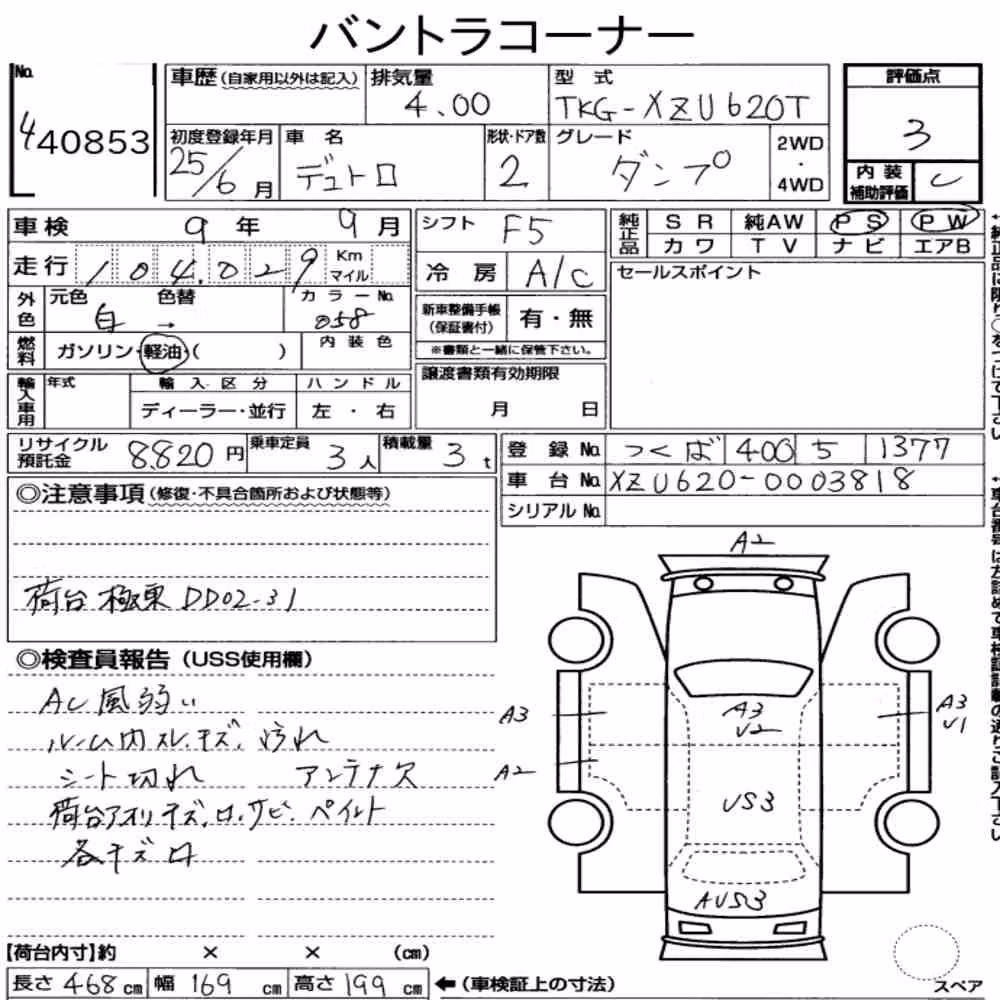 バントラコーナー
No. 440853
車歴 (自家用以外は記入)
排気量 4.00
型式 TKG-XZU620T
評価点 3
初度登録年月 25/6 月
車名 デュトロ
形状・ドア数 2
グレード ダンプ
2WD・4WD
内装補助評価 C
車検 9 年 9 月
シフト F5
純正品 SR 純AW PS PW
カワ TV ナビ エアB
走行 104,029 Km マイル
冷房 A/C
セールスポイント
外色 元色 白 → 色替
カラーNo. 058
新車整備手帳 (保証書付) 有・無
※書類と一緒に保管下さい。
燃料 ガソリン・軽油・( )
内装色
譲渡書類有効期限
月 日
輸入車用 年式
輸入区分 ディーラー・並行
ハンドル 左・右
リサイクル預託金 8820 円
乗車定員 3 人
積載量 3 t
登録No. つくば 400 う 1377
車台No. XZU620-0003818
シリアルNo.
◎注意事項 (修復・不具合箇所および状態等)
荷台 極東 DD02-31
◎検査員報告 (USS使用欄)
AC風弱い
ルーム内スレ、キズ、汚れ
シート切れ アンテナ欠
荷台アオリキズ、凹、サビ、ペイント
各キズ凹
A2
A3
A2
A3
U2
US3
AUS3
A3
U1
【荷台内寸】約 × × (cm)
長さ 468 cm 幅 169 cm 高さ 199 cm ←(車検証上の寸法)
スペア